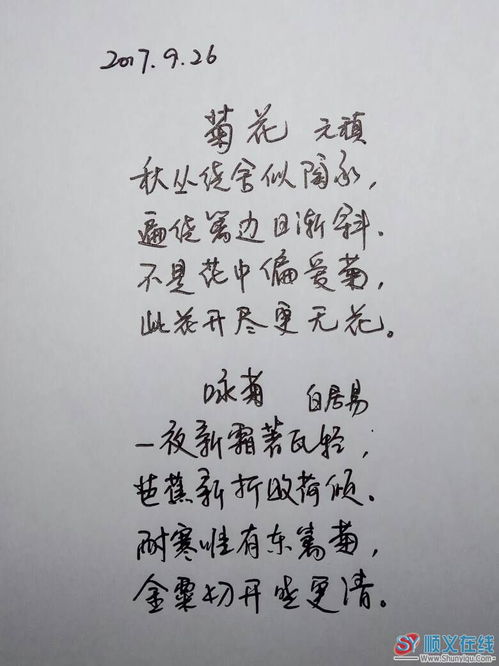 2017.9.26
菊花 元稹
秋丛绕舍似陶家，
遍绕篱边日渐斜．
不是花中偏爱菊，
此花开尽更无花。
咏菊 白居易
一夜新霜著瓦轻，
芭蕉新折败荷倾．
耐寒唯有东篱菊，
金粟初开晓更清。
SY 顺义在线
www.Shunyiqu.com